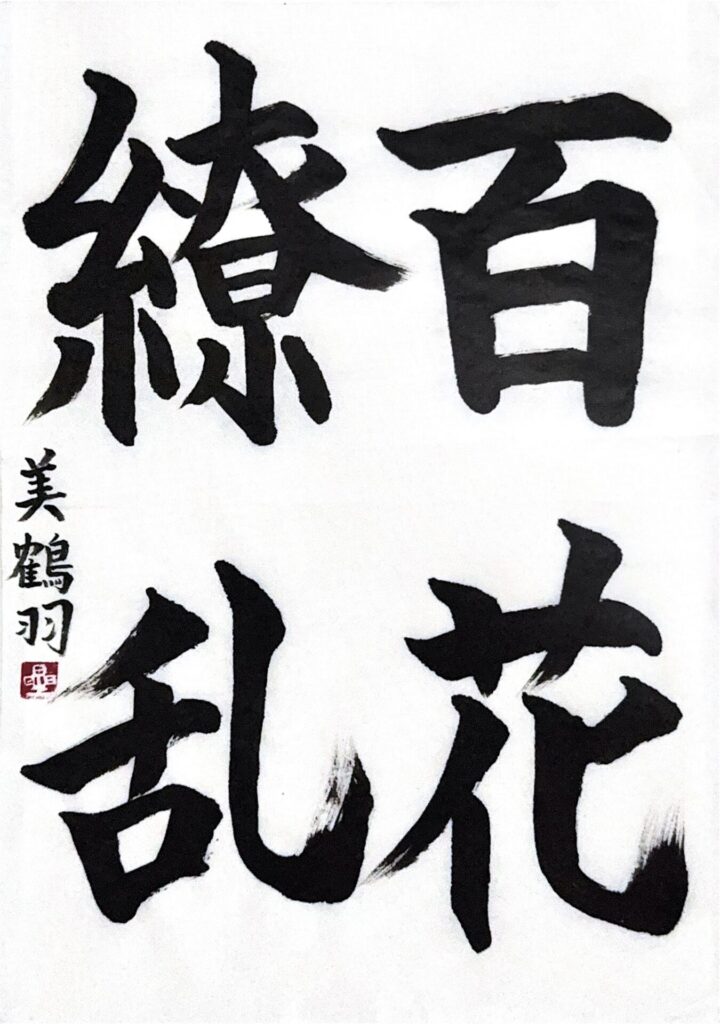 百花
繚乱
美鶴羽